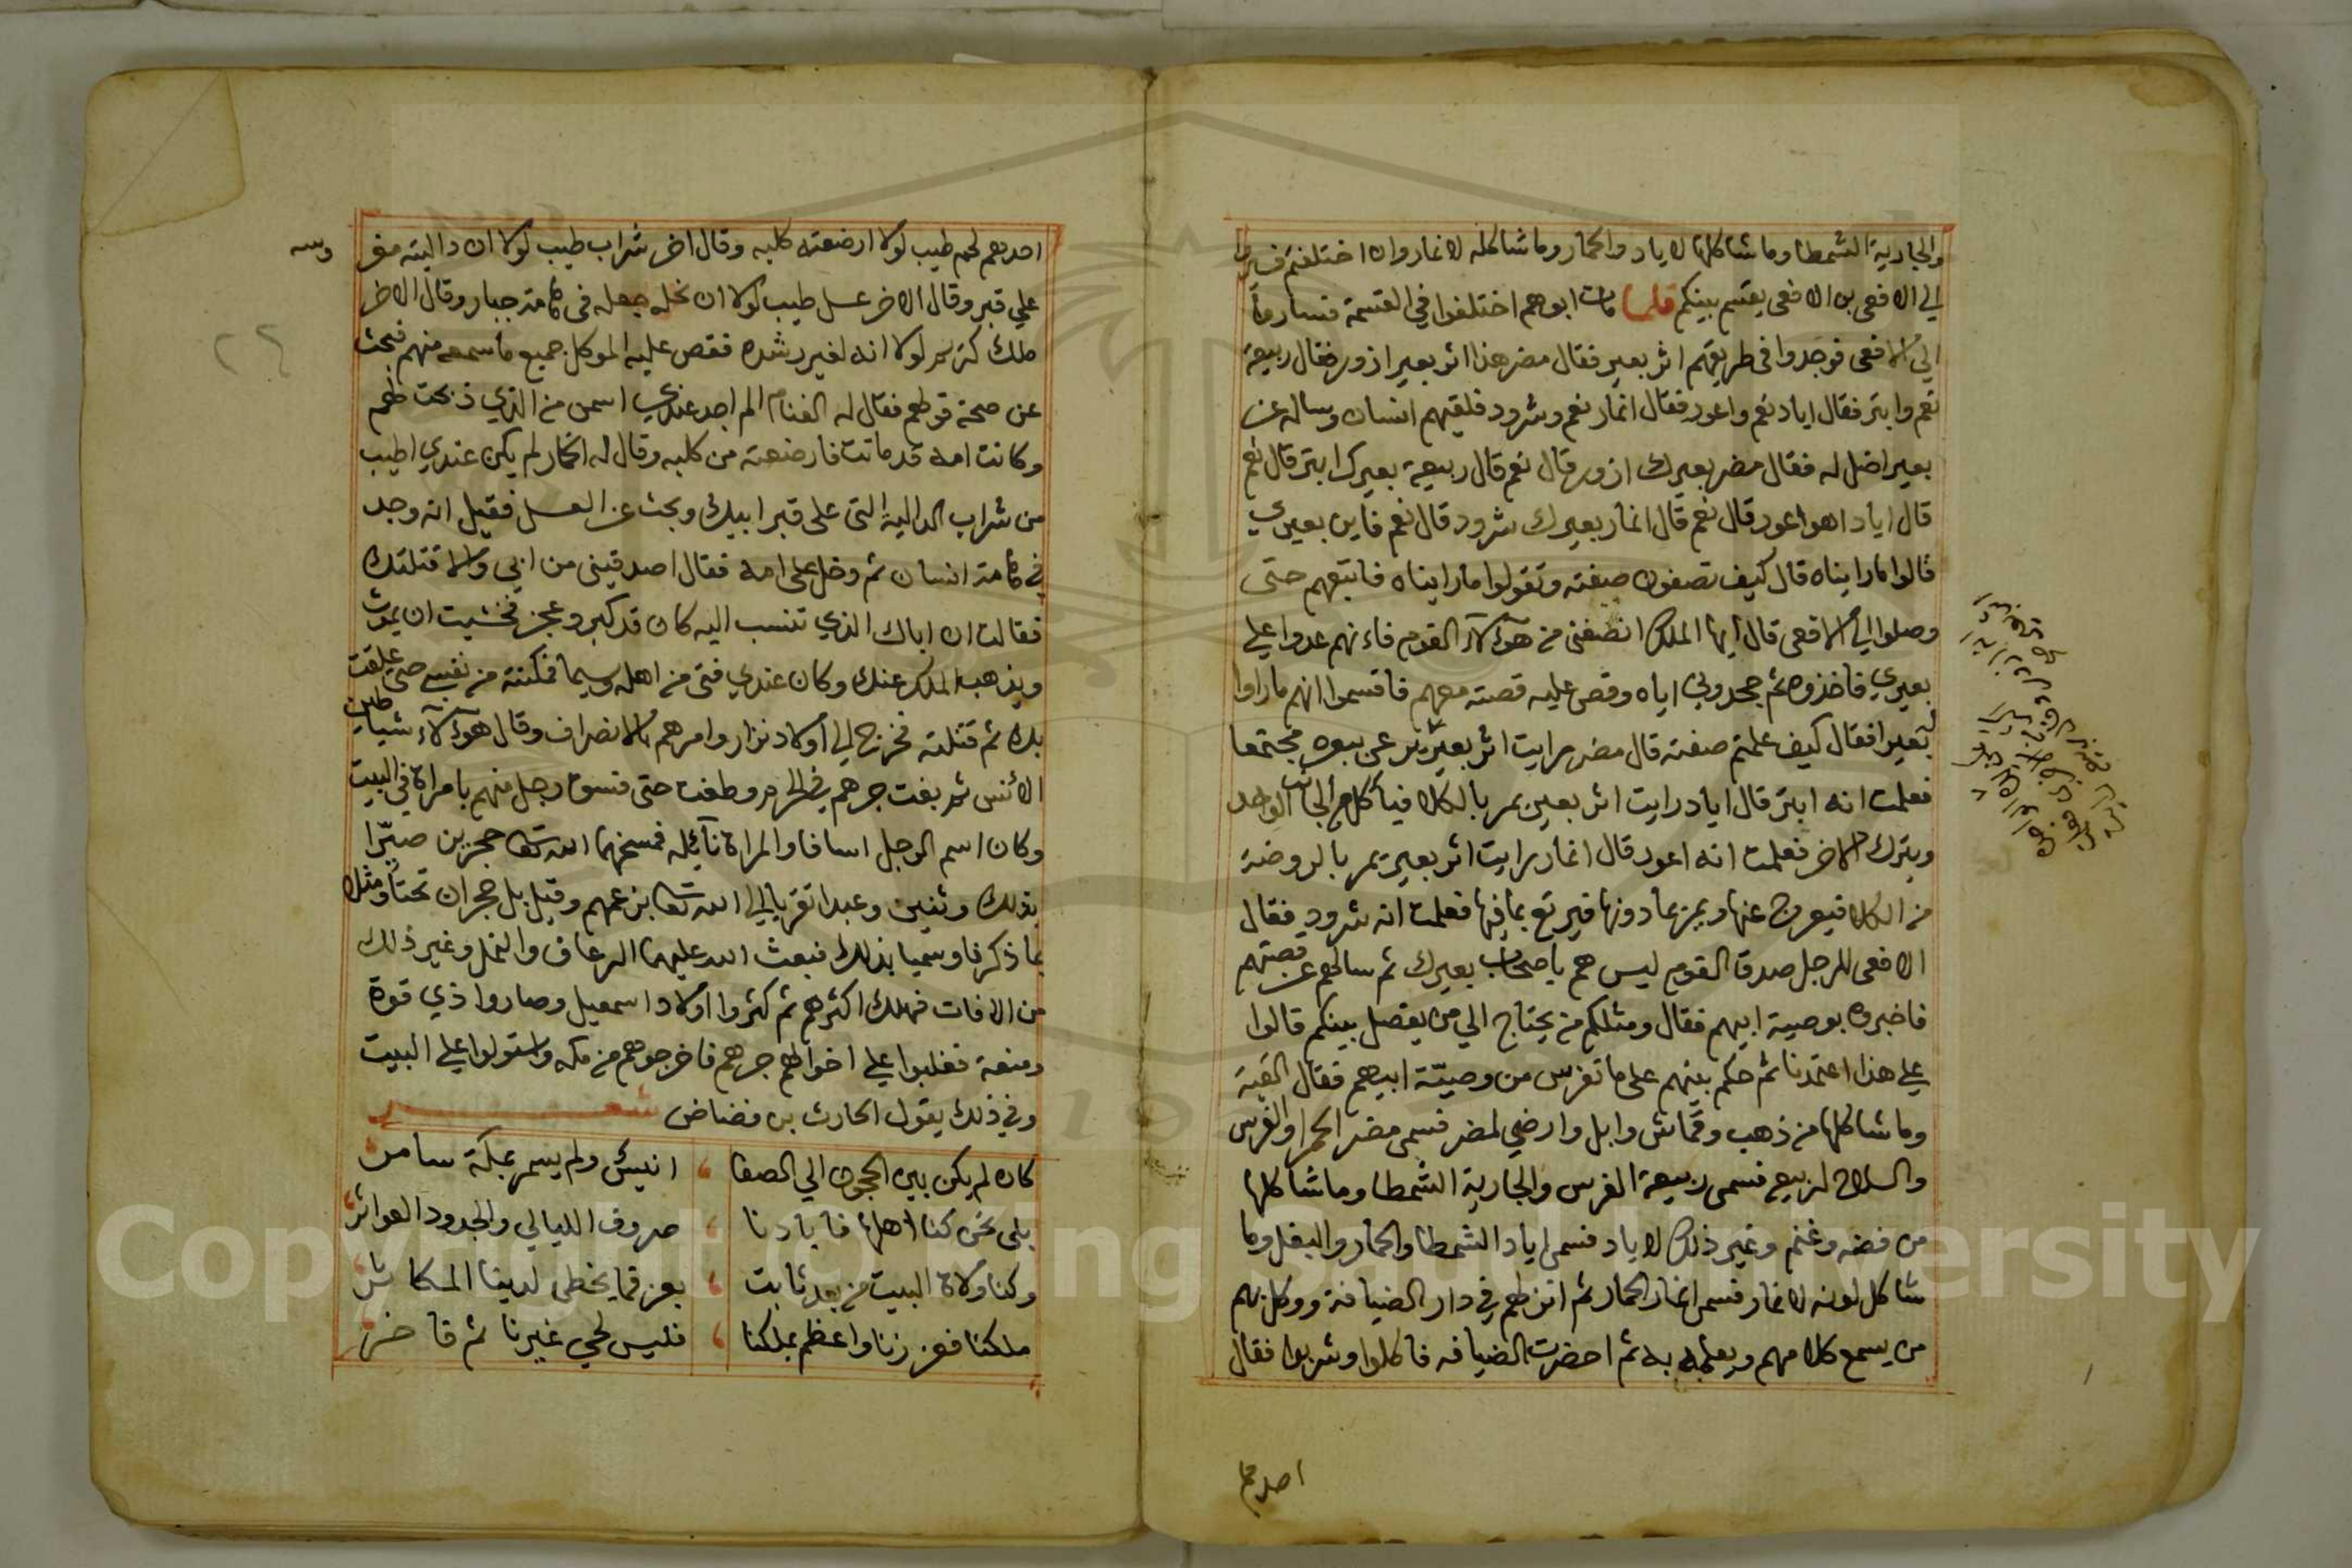 والجارية الشمطا وما شاكلها لاياد والحمار وما شاكله لانمار وان اختلفتم فسيروا
الي الافعى بن الافعى يقسم بينكم فلما مات ابوهم اختلفوا في القسمة فساروا
الي الافعى فوجدوا في طريقهم اثر بعير فقال مضر هذا اثر بعير ازور فقال ربيعة
نعم وابتر فقال اياد نعم واعور فقال انمار نعم وشرود فلقيهم انسان وساله عن
بعير اضل له فقال مضر بعيرك ازور قال نعم قال ربيعة بعيرك ابتر قال نعم
قال اياد اهو اعور قال نعم قال انمار بعيرك شرود قال نعم فاين بعيري
قالوا ما رايناه قال كيف تصفون صفته وتقولوا ما رايناه فاتبعهم حتى
وصلوا الي الافعى قال ايها الملك انصفني من هؤلاء القوم فاءنهم عدوا علي
بعيري فاخذوه ثم جحدوني اياه وقص عليه قصته معهم فاقسموا انهم ما راوا
له بعيرا فقال كيف علمتم صفته قال مضر رايت اثر بعير عن بعره مجتمعا
فعلمت انه ابتر قال اياد رايت اثر بعير يمر بالكلا فياكل من الجانب الواحد
ويترك الاخر فعلمت انه اعور قال انمار رايت اثر بعير يمر بالروضة
من الكلا فيعرج عنها ويمر بما دونها فيرتع بما فيها فعلمت انه شرود فقال
الافعى للرجل صدق القوم ليس هم باصحاب بعيرك ثم سالهم عن قصتهم
فاخبروه بوصية ابيهم فقال ومثلكم من يحتاج الي من يفصل بينكم قالوا
علي هذا اعتمدنا ثم حكم بينهم على ما تفرس من وصيّة ابيهم فقال القبة
وما شاكلها من ذهب وقماش وابل وارضي لمضر فسمى مضر الحمرا والفرس
والسلاح لربيعه فسمى ربيعة الفرس والجارية الشمطا وما شاكلها
من فضه وغنم وغير ذلك لاياد فسمى اياد الشمطا والحمار والبغل وما
شاكل لونه لانمار فسمى انمار الحمار ثم انزلهم في دار الضيافة ووكل بهم
من يسمع كلامهم ويعلمه به ثم احضرت الضيافه فاكلوا وشربوا فقال
احدهم
احدهم لحم طيب لولا ارضعته كلبه وقال اخر شراب طيب لولا ان داليته
علي قبر وقال الاخر عسل طيب لولا ان نحله جعله في هامة جبار وقال الاخر
ملك كريم لولا انه لغير رشده فقص عليه الموكل جميع ما سمعه منهم فبحث
عن صحة قولهم فقال له الغنام الم اجد عندي اسمن من الذي ذبحت لهم
وكانت امه قد ماتت فارضعته من كلبه وقال له الخمار لم يكن عندي اطيب
من شراب الدالية التي على قبر ابيك وبحث عن العسل فقيل انه وجد
في هامة انسان ثم دخل على امه فقال اصدقيني من ابي والا قتلتك
فقالت ان اباك الذي تنسب اليه كان قد كبر وعجز فخشيت ان يموت
ويذهب الملك عنك وكان عندي فتى من اهله وسيما فمكنته من نفسي حتى علقت
بك ثم قتلته فخرج الي اولاد نزار وامرهم بالانصراف وقال هؤلاء شياطين
الانس ثم بغت جرهم في الحرم وطغت حتى فسق رجل منهم بامراة في البيت
وكان اسم الرجل اسافا والمراة نآئله فمسخهما الله تعا حجرين صيّرا
بذلك وثنين وعبدا تقربا الي الله تعا بزعمهم وقيل بل حجران نحتا ومثلا
بما ذكر وسميا بذلك فبعث الله عليهما الرعاف والنمل وغير ذلك
من الافات فهلك اكثرهم ثم كثروا اولاد اسمعيل وصاروا ذي قوة
ومنعة فغلبوا علي اخوالهم جرهم فاخرجوهم من مكه واستولوا علي البيت
وفي ذلك يقول الحارث بن مضاض شعر
كان لم يكن بين الحجون الي الصفا ، انيس ولم يسمر بمكة سامر
بلى نحن كنا اهلها فابادنا ، صروف الليالي والجدود العواثر
وكنا ولاة البيت من بعد ثابت ، بعز فما يخطى لدينا المكاثر
ملكنا فعززنا واعظم بملكنا ، فليس لحي غيرنا ثم فاخر
Copyright © King Saud University